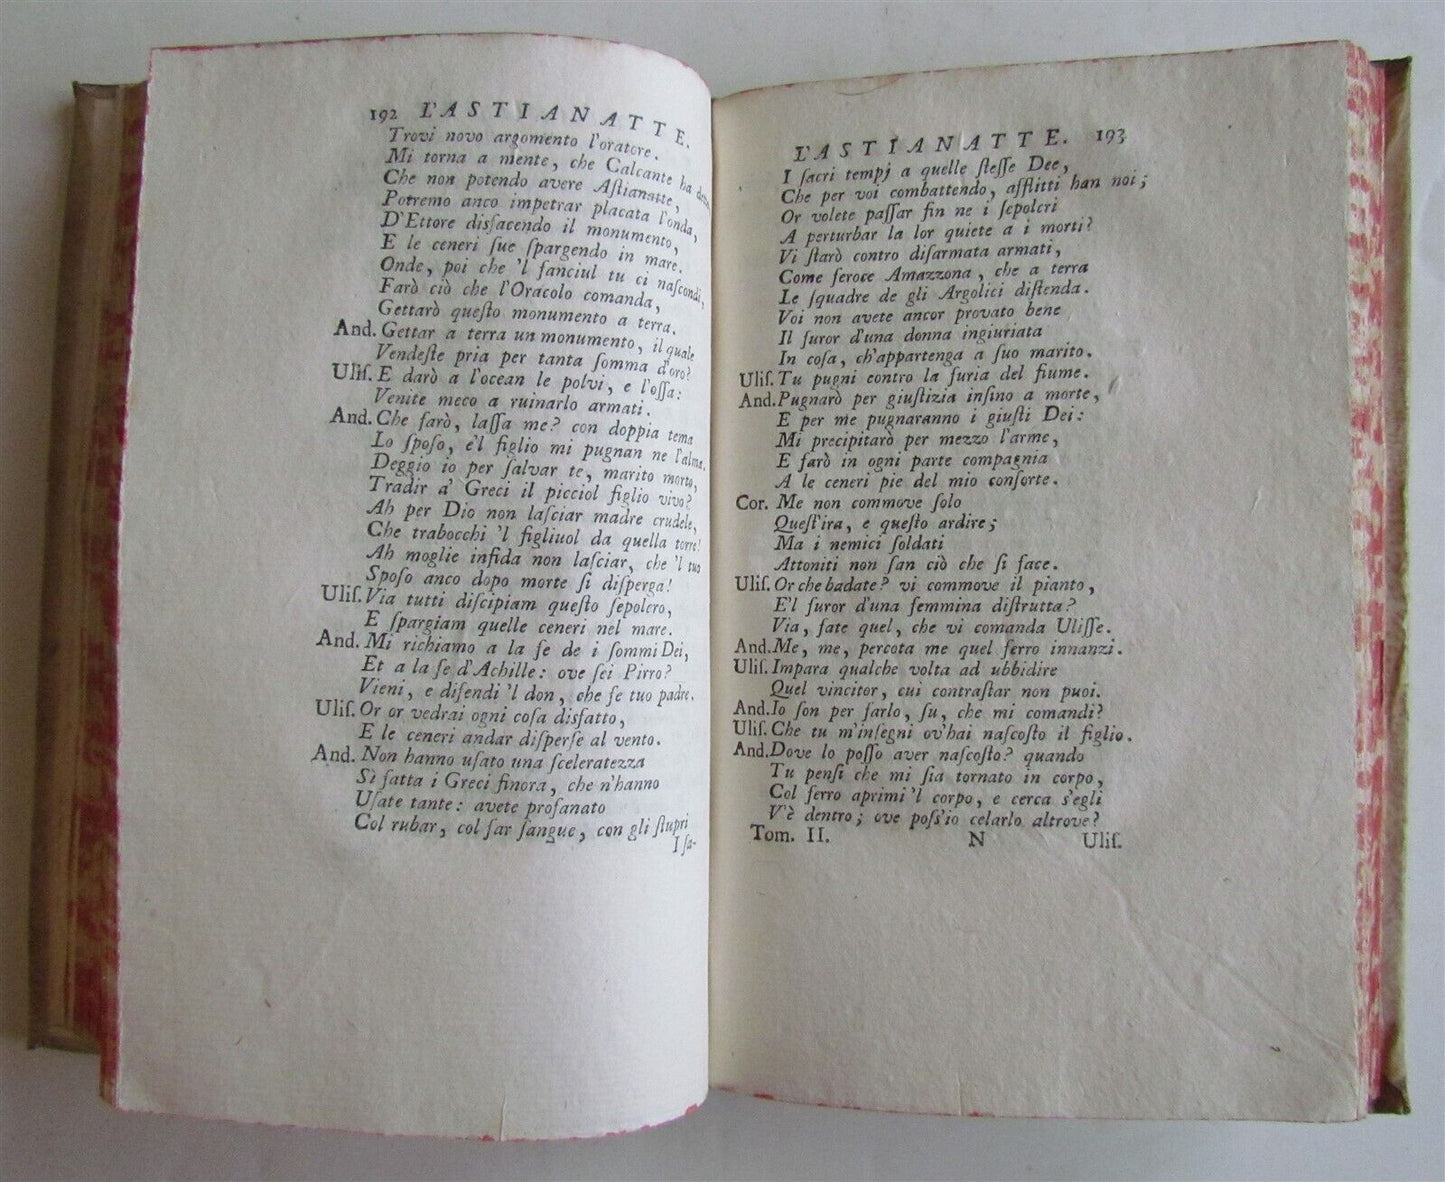 192 L'ASTIANATTE.
Trovi novo argomento l'oratore.
Mi torna a mente, che Calcante ha
Che non potendo avere Aſtianatte,
Potremo anco impetrar placata l'onda,
D'Ettore disfacendo il monumento,
E le ceneri ſue ſpargendo in mare.
Onde, poi che 'l fanciul tu ci naſcondi,
Farò ciò che l'Oracolo comanda,
Gettarò queſto monumento a terra.
And. Gettar a terra un monumento, il quale
Vendeſte pria per tanta ſomma d'oro?
Uliſ. E darò a l'ocean le polvi, e l'oſſa:
Venite meco a ruinarlo armati.
And. Che farò, laſſa me? con doppia tema
Lo ſpoſo, e'l figlio mi pugnan ne l'alma.
Deggio io per ſalvar te, marito morto,
Tradir a' Greci il picciol figlio vivo?
Ah per Dio non laſciar madre crudele,
Che trabocchi 'l figliuol da quella torre!
Ah moglie infida non laſciar, che 'l tuo
Spoſo anco dopo morte ſi diſperga!
Uliſ. Via tutti diſcipiam queſto ſepolcro,
E ſpargiam quelle ceneri nel mare.
And. Mi richiamo a la fe de i ſommi Dei,
Et a la fe d'Achille: ove ſei Pirro?
Vieni, e difendi 'l don, che fe tuo padre.
Uliſ. Or or vedrai ogni coſa disfatto,
E le ceneri andar diſperſe al vento.
And. Non hanno uſato una ſceleratezza
Sì fatta i Greci finora, che n'hanno
Uſate tante: avete profanato
Col rubar, col far ſangue, con gli ſtupri
I ſa-
L'ASTIANATTE. 193
I ſacri tempj a quelle ſteſſe Dee,
Che per voi combattendo, afflitti han noi;
Or volete paſſar fin ne i ſepolcri
A perturbar la lor quiete a i morti?
Vi ſtarò contro diſarmata armati,
Come feroce Amazzona, che a terra
Le ſquadre de gli Argolici diſtenda.
Voi non avete ancor provato bene
Il furor d'una donna ingiuriata
In coſa, ch'appartenga a ſuo marito.
Uliſ. Tu pugni contro la furia del fiume.
And. Pugnarò per giuſtizia infino a morte,
E per me pugnaranno i giuſti Dei:
Mi precipitarò per mezzo l'arme,
E farò in ogni parte compagnia
A le ceneri pie del mio conſorte.
Cor. Me non commove ſolo
Queſt'ira, e queſto ardire;
Ma i nemici ſoldati
Attoniti non ſan ciò che ſi face.
Uliſ. Or che badate? vi commove il pianto,
E'l furor d'una femmina diſtrutta?
Via, fate quel, che vi comanda Uliſſe.
And. Me, me, percota me quel ferro innanzi.
Uliſ. Impara qualche volta ad ubbidire
Quel vincitor, cui contraſtar non puoi.
And. Io ſon per farlo, ſu, che mi comandi?
Uliſ. Che tu m'inſegni ov'hai naſcoſto il figlio.
And. Dove lo poſſo aver naſcoſto? quando
Tu penſi che mi ſia tornato in corpo,
Col ferro aprimi 'l corpo, e cerca s'egli
V'è dentro; ove poſs'io celarlo altrove?
Tom. II. N Uliſ.